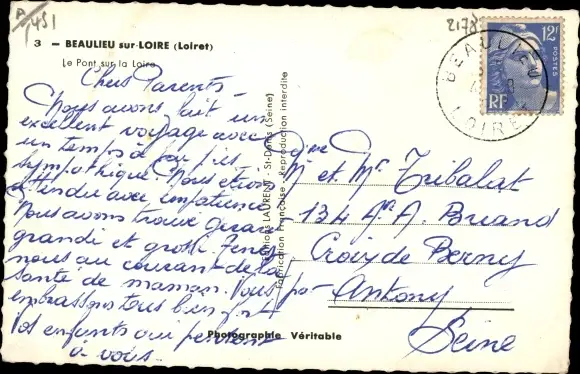 A
1451
2178
3 - BEAULIEU sur-LOIRE (Loiret)
Le Pont sur la Loire
12F
POSTES
RF
BEAULIEU
LOIRE
Chers Parents -
Nous avons fait un
excellent voyage avec
un temps à peu près
sympathique. Nous étions
attendu avec impatience
Nous avons trouvé Gérard
grandi et grossi. Tenez
nous au courant de la
santé de maman. Nous vous
embrassons tous bien fort
Vos enfants qui pensent
à vous -
Editions LAURENT - St-Denis (Seine)
Fabrication Française - Reproduction interdite
Mr et Me Tribalat
134 Av. A. Briand
Croix de Berny
par Antony
Seine
Photographie Véritable